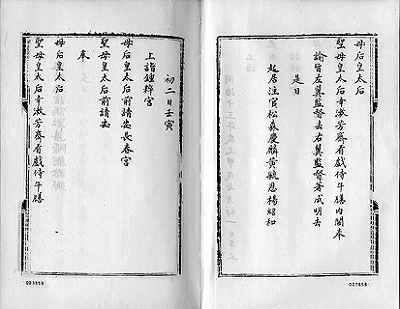 母后皇太后
聖母皇太后幸漱芳齋看戲侍午膳內閣奉
諭旨左翼監督去右翼監督著成明去
是日
起居注官松森慶麟黃毓恩楊紹和
初二日壬寅
上詣鍾粹宮
母后皇太后前請安長春宮
聖母皇太后前請安
奉
母后皇太后
聖母皇太后幸漱芳齋看戲侍午膳
023858